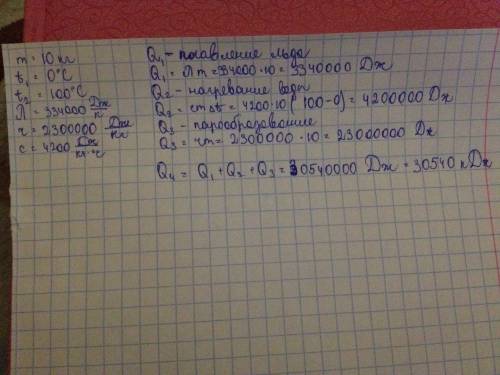 m = 10 кг
t₁ = 0°C
t₂ = 100°C
λ = 334000 Дж/к
r = 2300000 Дж/кг
c = 4200 Дж/кг·ч
Q₁ - плавление льда
Q₁ = λm = 334000·10 = 3340000 Дж
Q₂ - нагревание воды
Q₂ = cmΔt = 4200·10(100-0) = 4200000 Дж
Q₃ - парообразование
Q₃ = rm = 2300000·10 = 23000000 Дж
Q₄ = Q₁ + Q₂ + Q₃ = 30540000 Дж = 30540 кДж